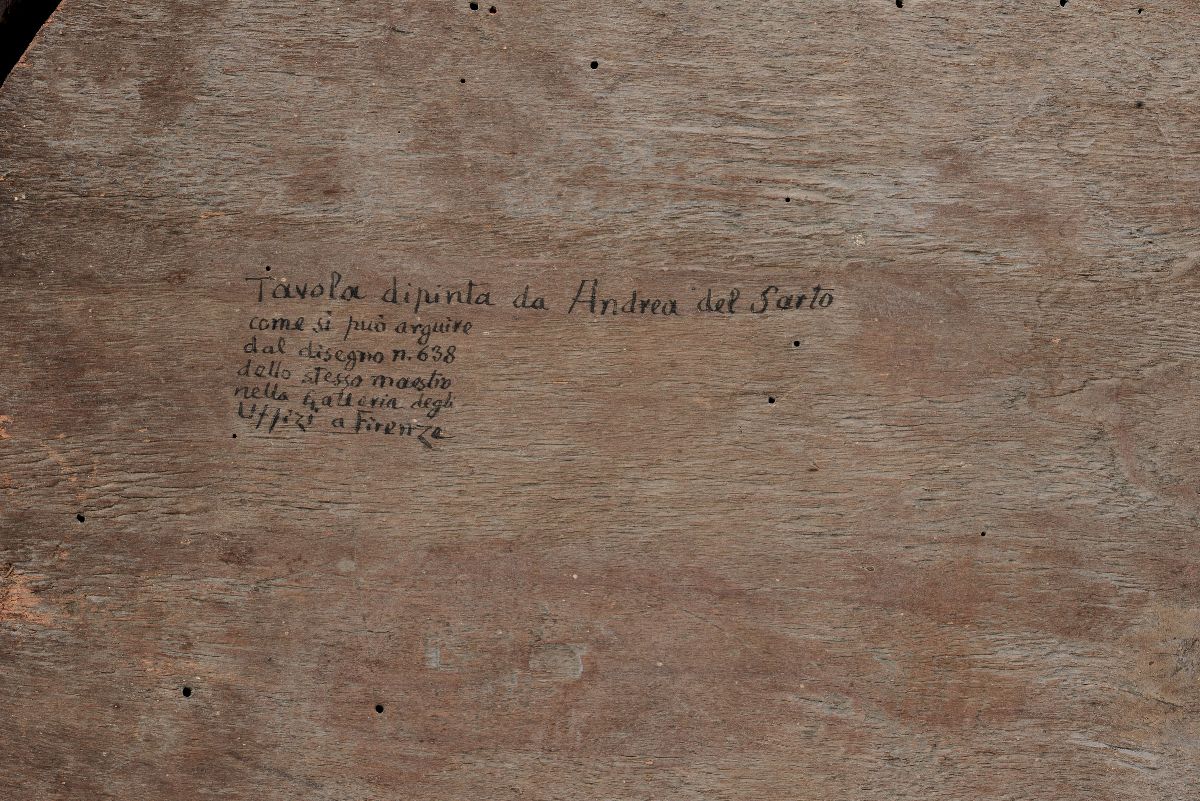 Tavola dipinta da Andrea del Sarto
come si può arguire
dal disegno n. 638
dello stesso maestro
nella Galleria degli
Uffizi a Firenze